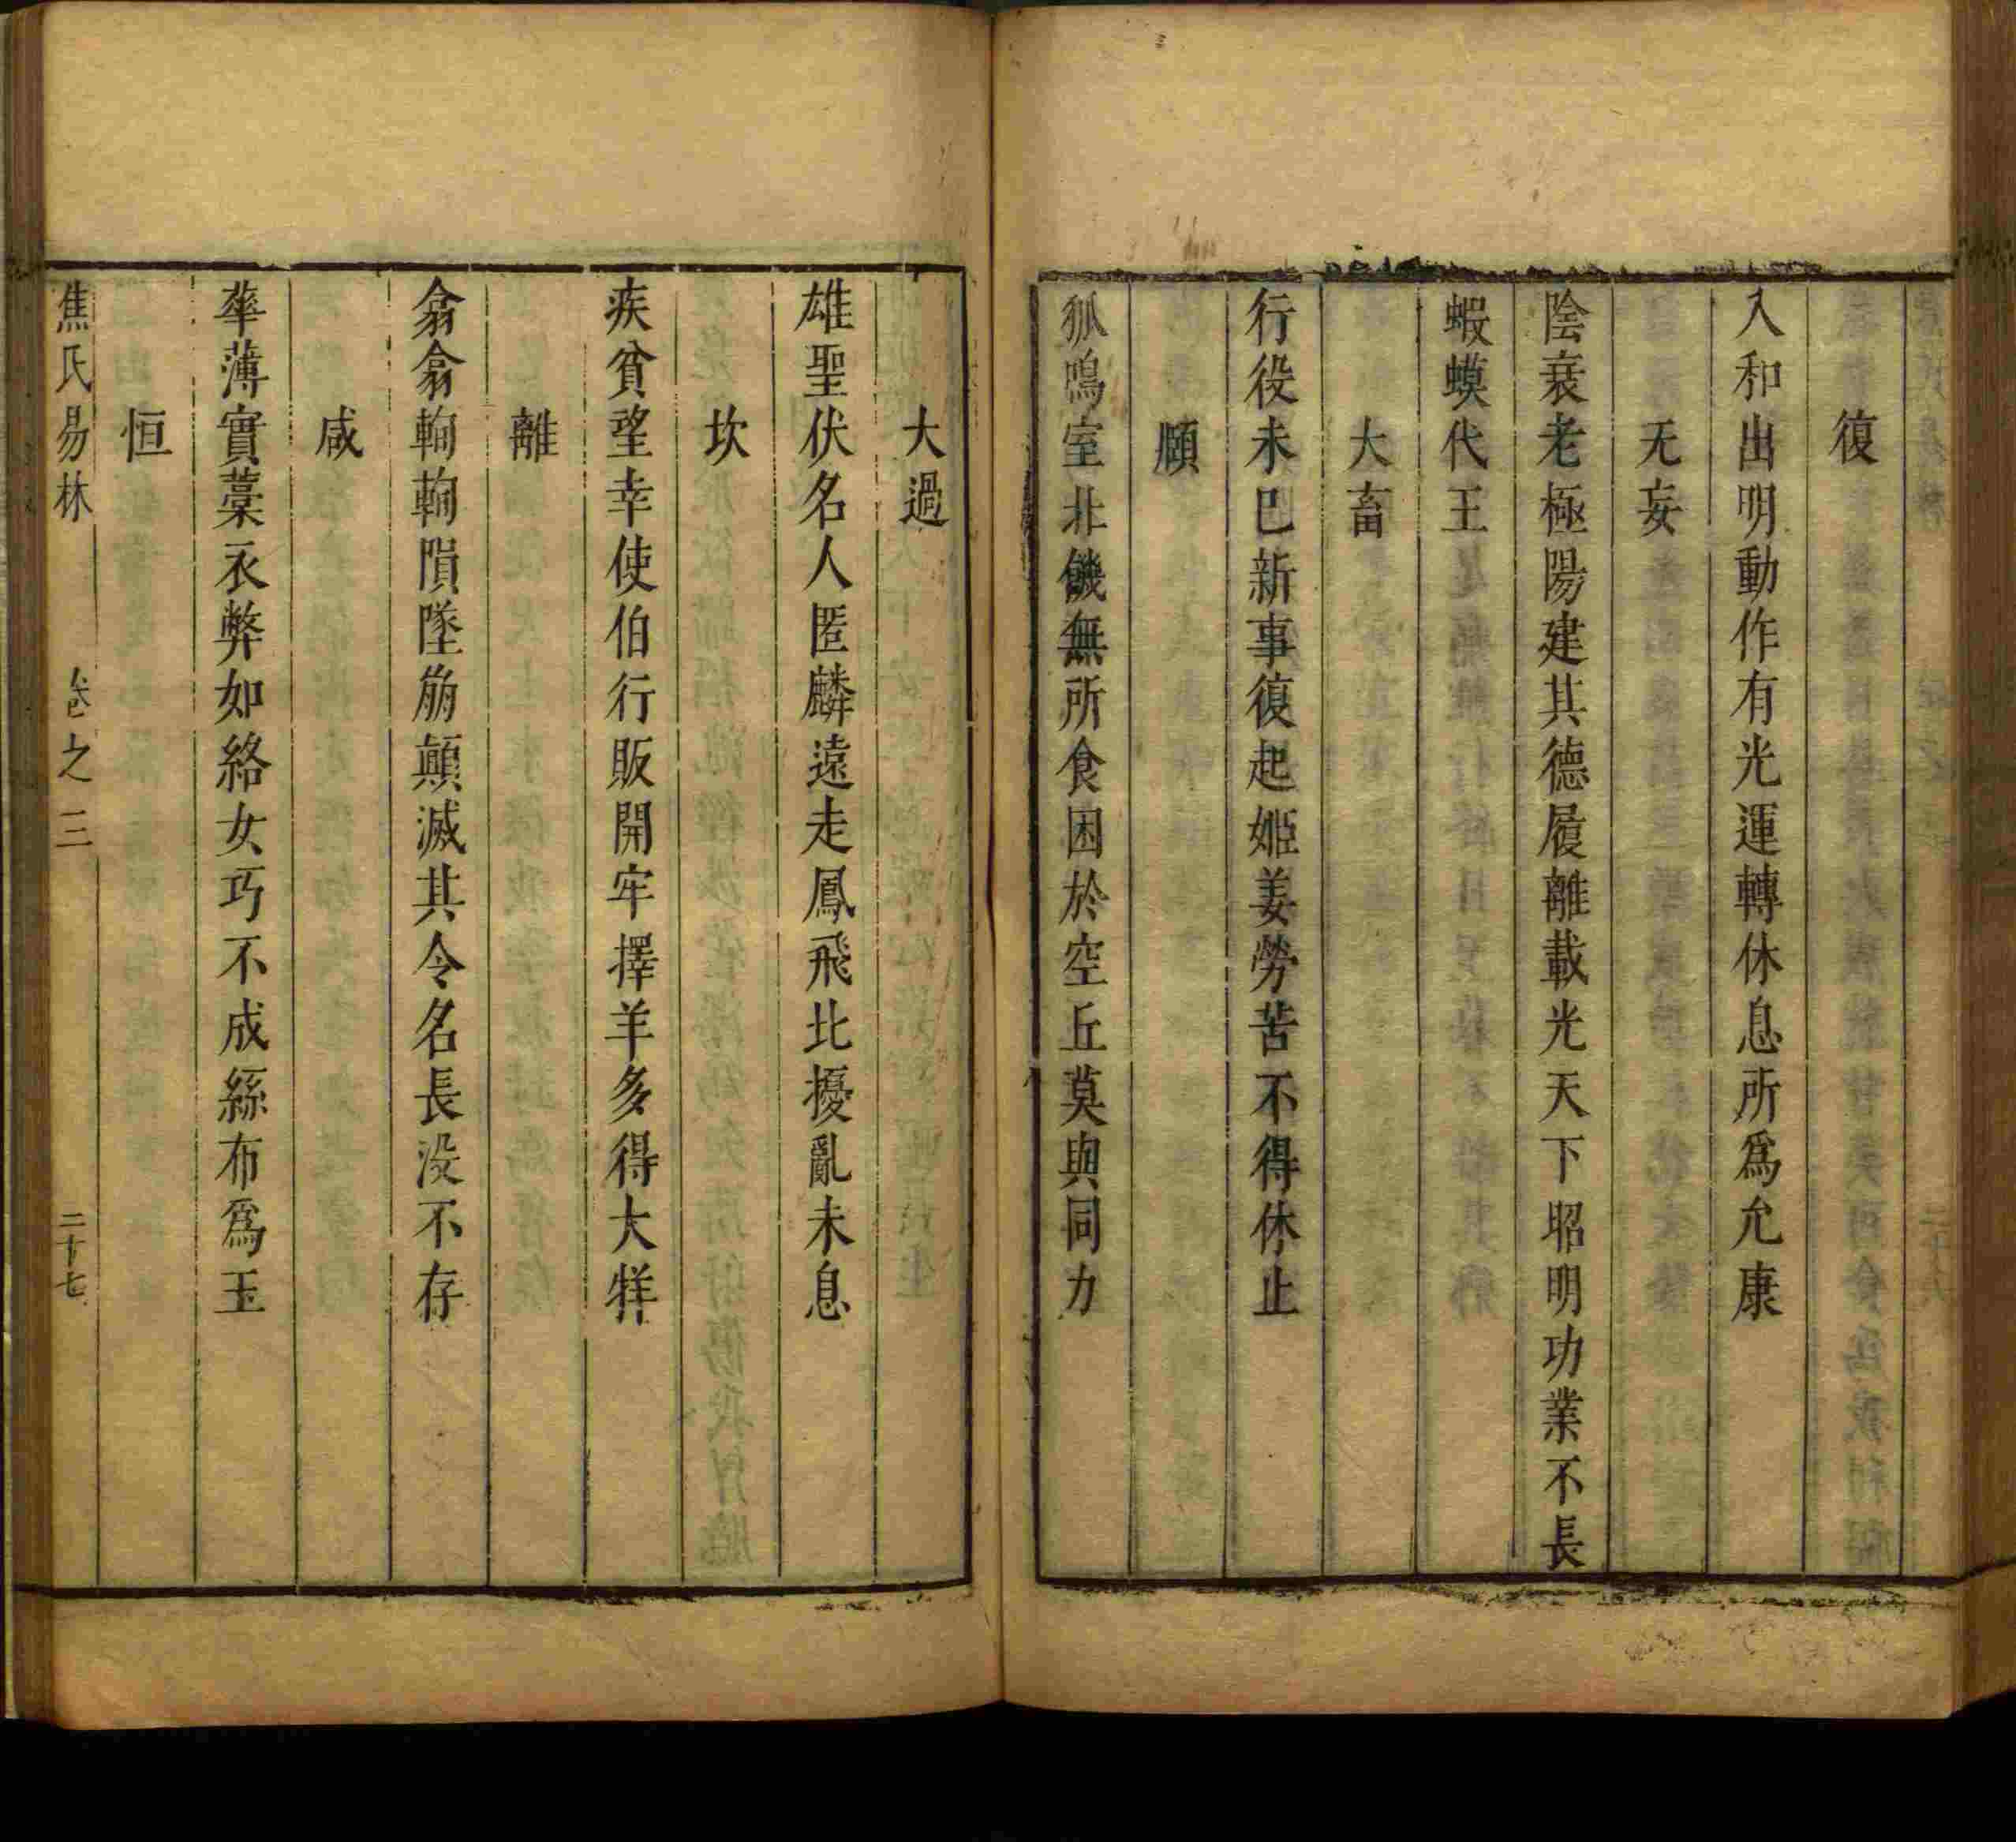 復
入和出明動作有光運轉休息所爲允康
无妄
陰衰老極陽建其德履離載光天下昭明功業不長
蝦蟆代王
大畜
行役未巳新事復起姬姜勞苦不得休止
頤
狐鳴室北饑無所食困於空丘莫與同力
大過
雄聖伏名人匿麟遠走鳳飛比擾亂未息
坎
疾貧望幸使伯行販開牢擇羊多得大牂
離
翕翕輷輷隕墜崩顛滅其令名長没不存
咸
華薄實槀衣弊如絡女巧不成絲布爲玉
恒
焦氏易林 卷之三 二十七